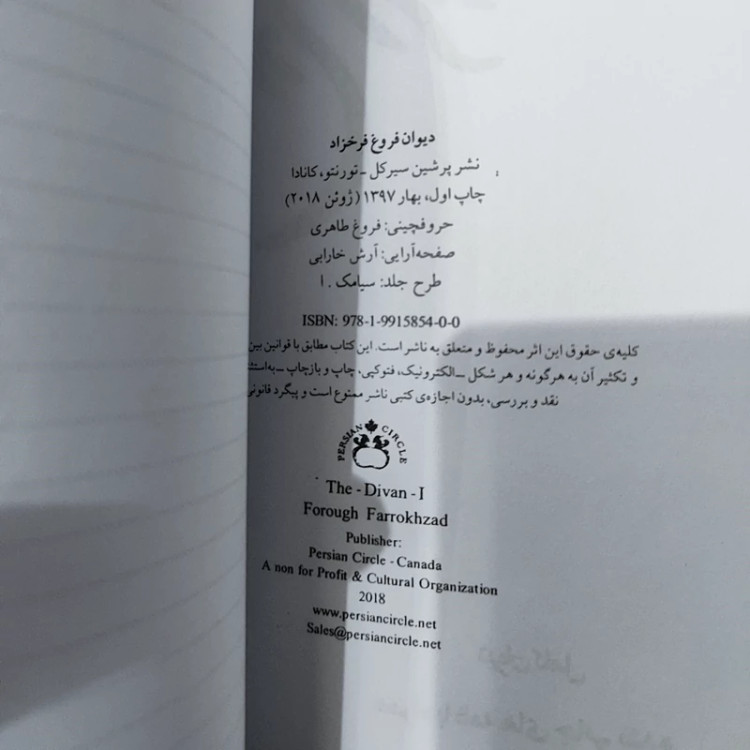 دیوان فروغ فرخزاد
نشر پرشین سیرکل ـ تورنتو، کانادا
چاپ اول، بهار ۱۳۹۷ (ژوئن ۲۰۱۸)
حروفچینی: فروغ طاهری
صفحه‌آرایی: آرش خارابی
طرح جلد: سیامک . ا
ISBN: 978-1-9915854-0-0
کلیه‌ی حقوق این اثر محفوظ و متعلق به ناشر است. این کتاب مطابق با قوانین بین
و تکثیر آن به هرگونه و هر شکل ـ الکترونیک، فتوکپی، چاپ و بازچاپ ـ به‌استث
نقد و بررسی، بدون اجازه‌ی کتبی ناشر ممنوع است و پیگرد قانونی
PERSIAN CIRCLE
The - Divan - I
Forough Farrokhzad
Publisher:
Persian Circle - Canada
A non for Profit & Cultural Organization
2018
www.persiancircle.net
Sales@persiancircle.net